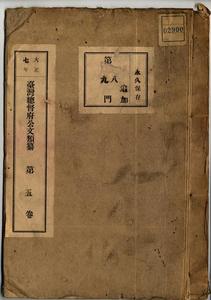 02900
永久保存
追加
第八
九門
大正
七年
臺灣總督府公文類纂
第五卷